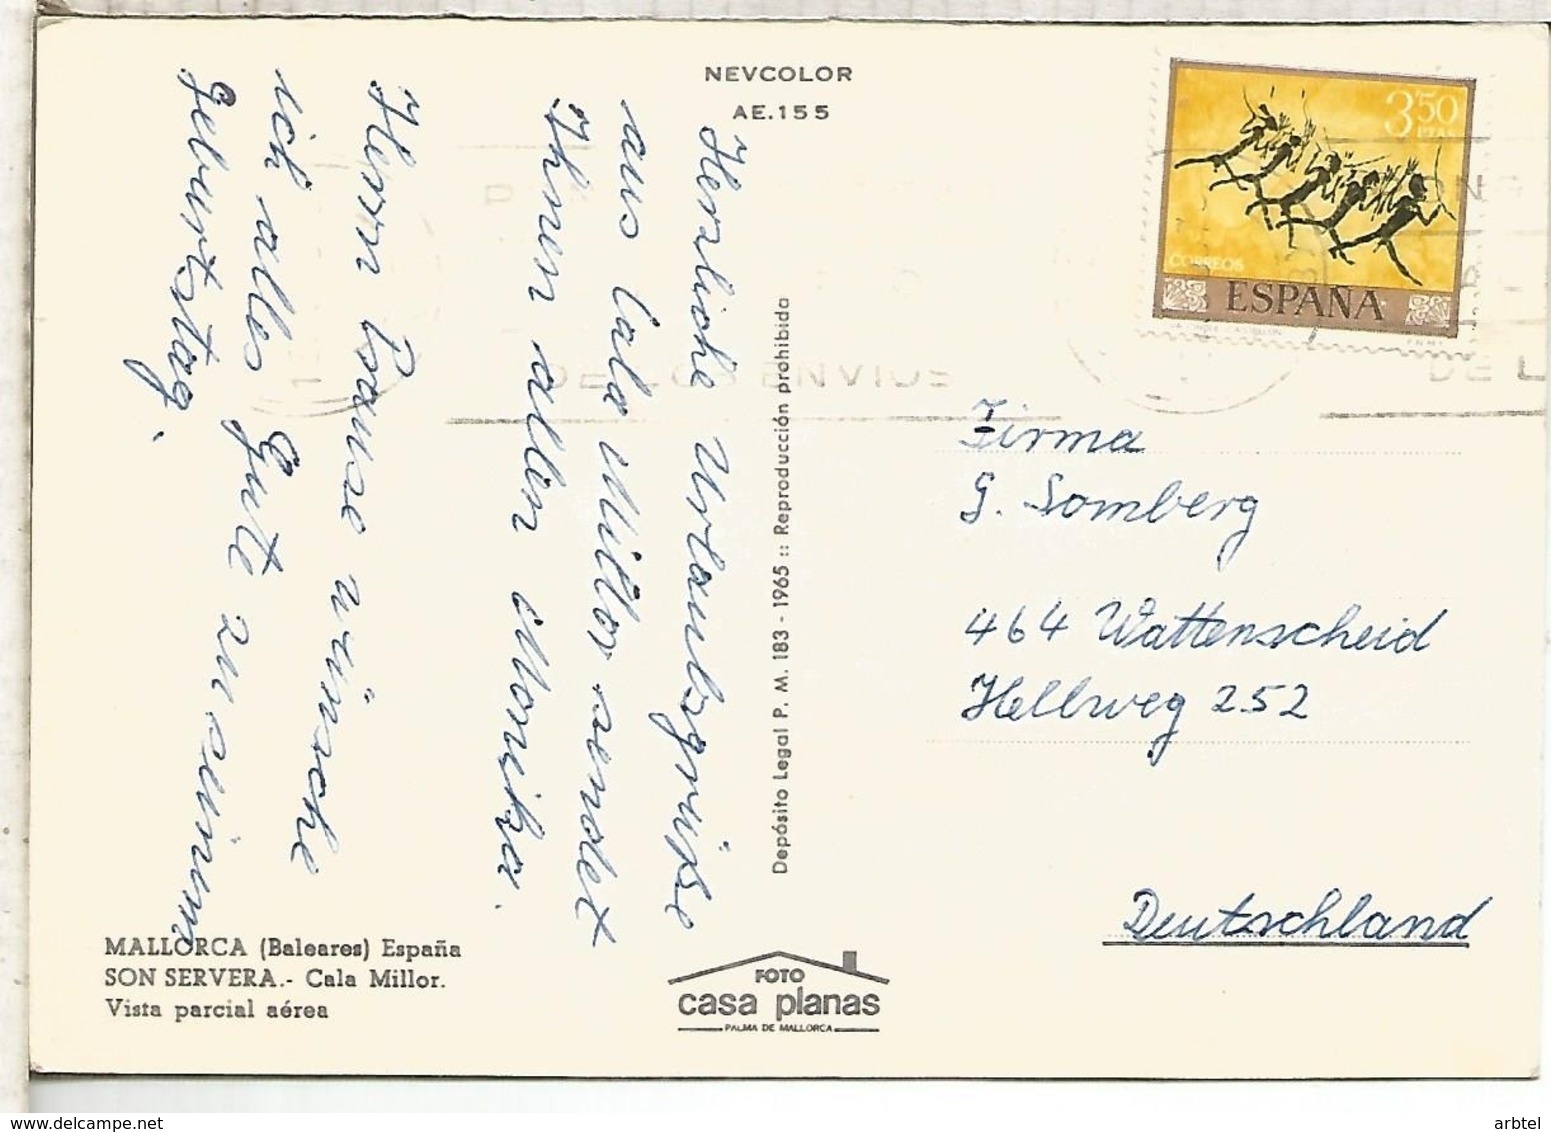 NEVCOLOR
AE.155
Herzliche Urlaubsgrüße
aus Cala Millor sendet
Ihnen allen Monika.
Herrn Brause wünsche
ich alles Gute zu seinem
Geburtstag.
Depósito Legal P. M. 183 - 1965 :: Reproducción prohibida
MALLORCA (Baleares) España
SON SERVERA.- Cala Millor.
Vista parcial aérea
FOTO
casa planas
PALMA DE MALLORCA
3'50
PTAS
CORREOS
ESPAÑA
F.N.M.T.
DE LOS ENVIOS
DE L
Firma
G. Lomberg
464 Wattenscheid
Hellweg 252
Deutschland
delcampe.net
arbtel